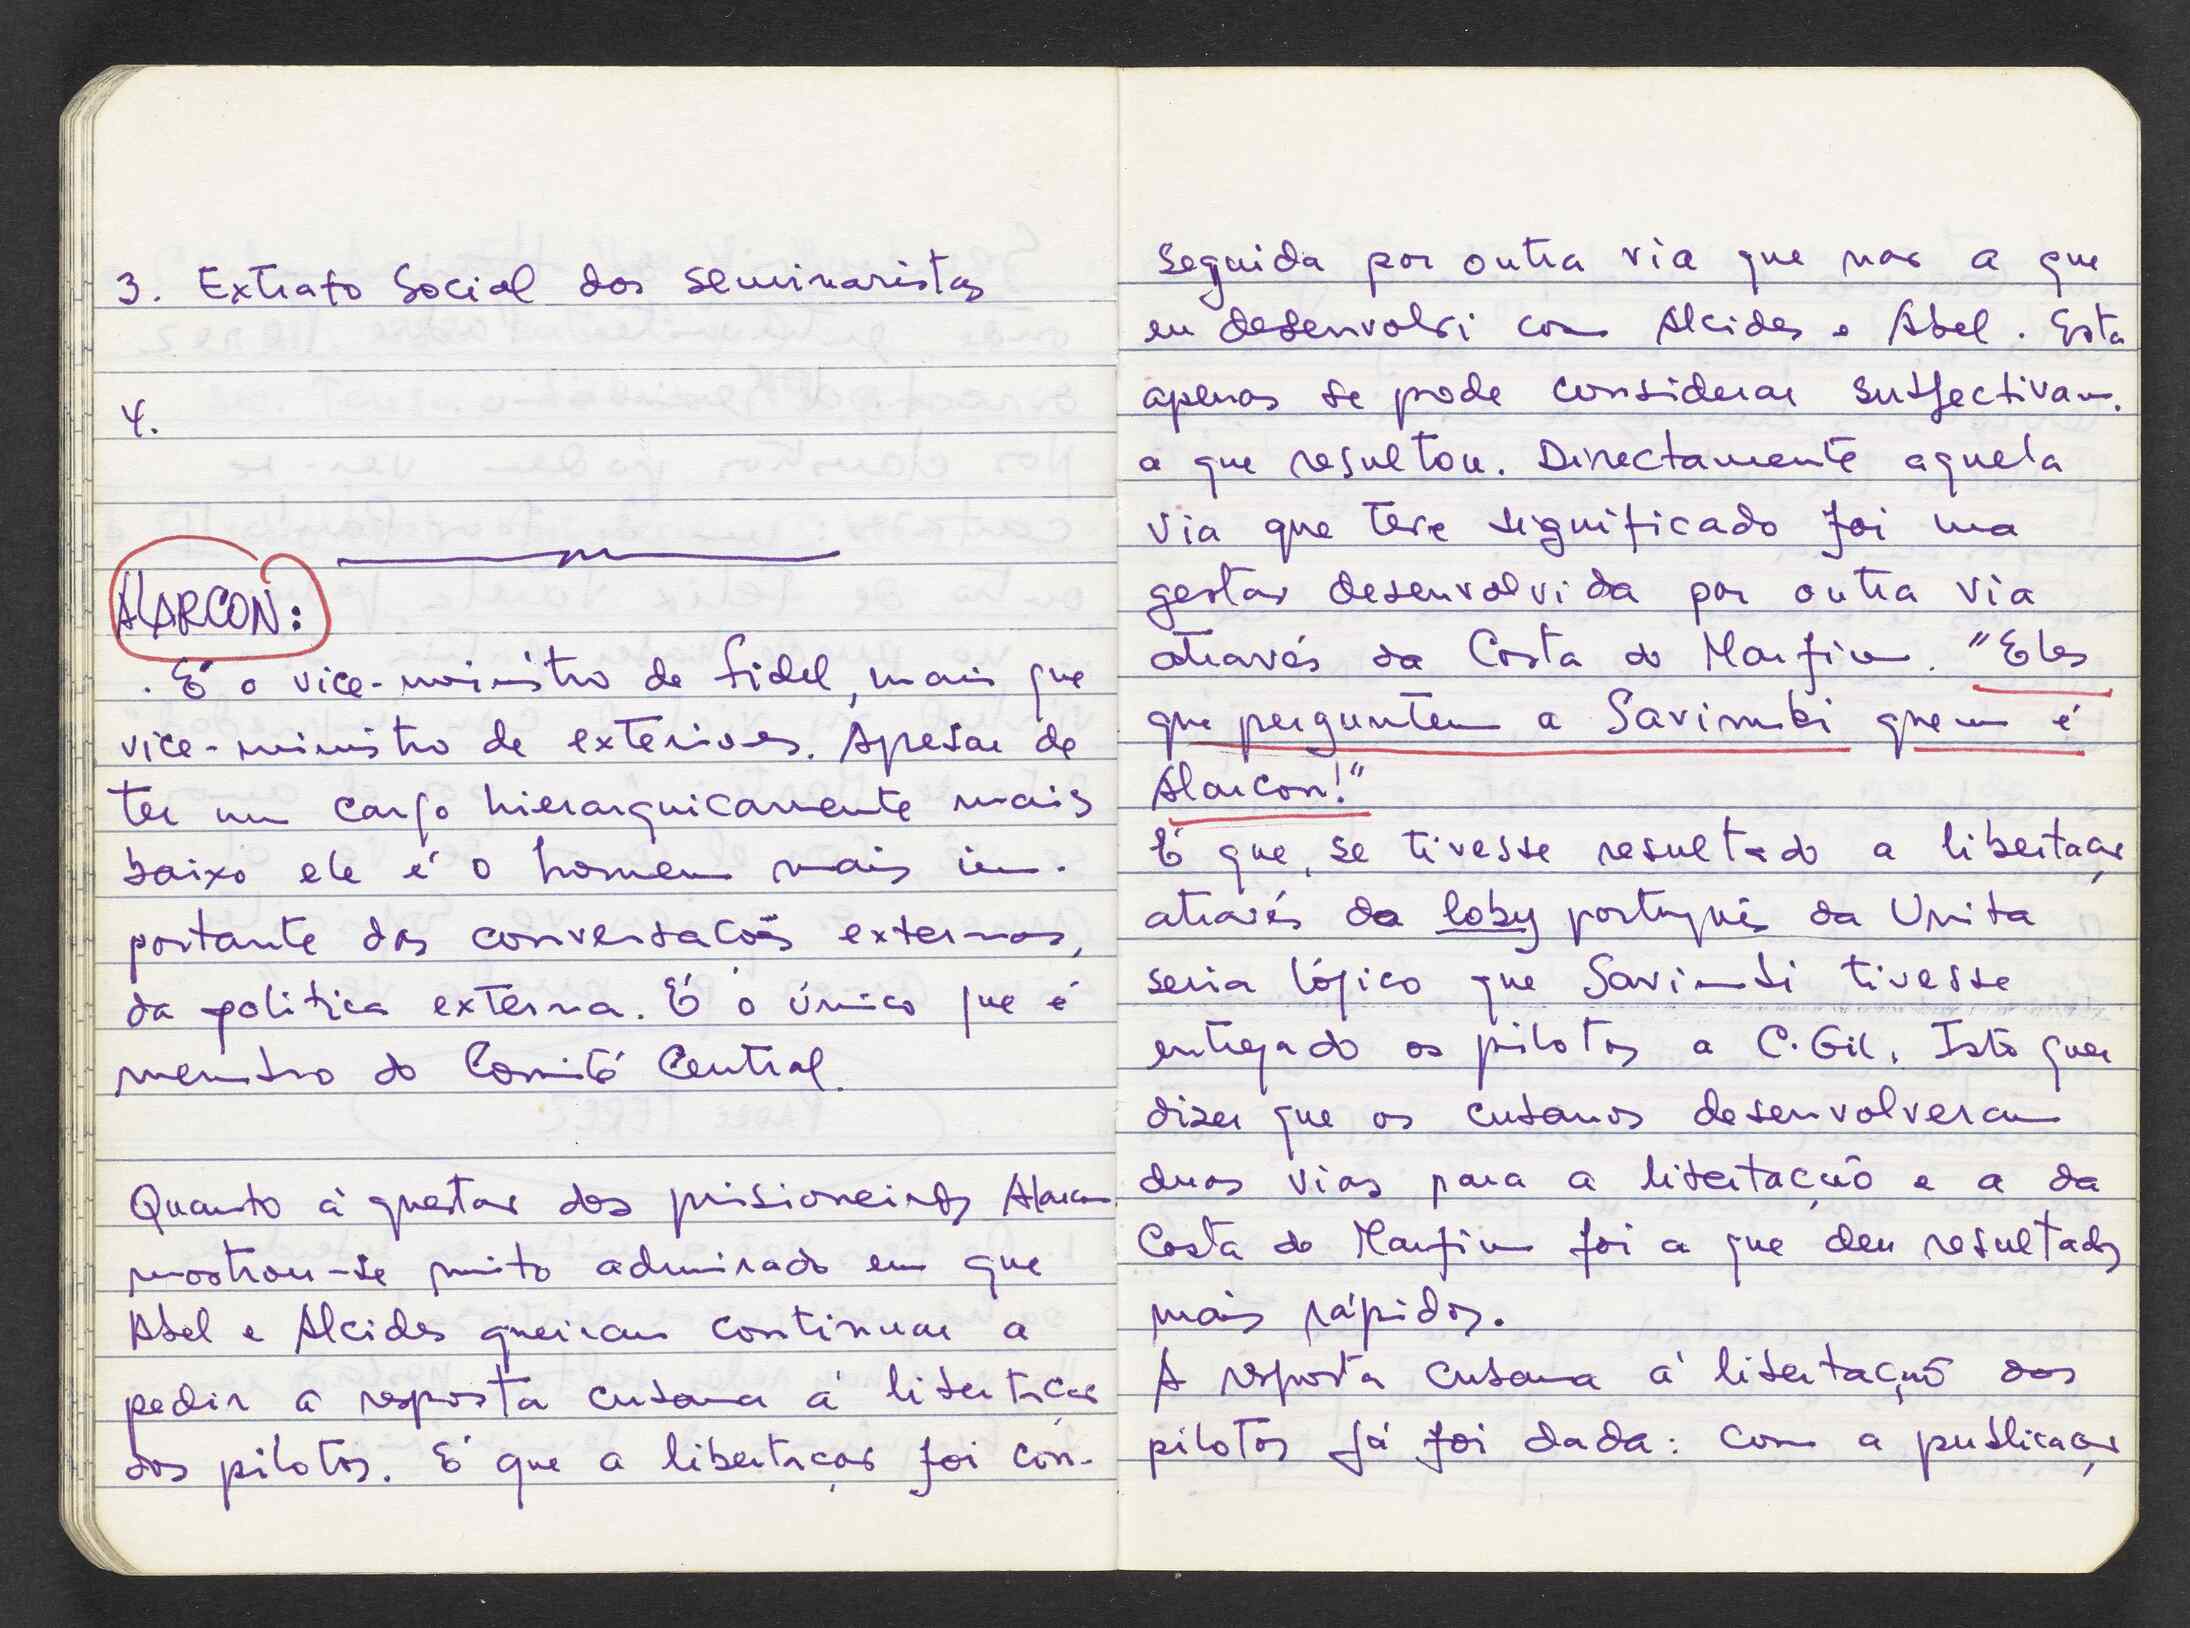 3. Extrato Social dos seminaristas
4.
ALARCON:
. É o vice-ministro de Fidel, mais que
vice-ministro de exteriores. Apesar de
ter um cargo hierarquicamente mais
baixo ele é o homem mais im-
portante das conversacões externas,
da politica externa. É o único que é
membro do Comité Central.
Quanto à questão dos prisioneiros Alarcon
mostrou-se muito admirado em que
Abel e Alcides queiram continuar a
pedir a resposta cubana á libertação
dos pilotos. É que a libertação foi con-
seguida por outra via que não a que
eu desenvolvi com Alcides e Abel. Esta
apenas se pode considerar subjectivam.
a que resultou. Directamente aquela
via que teve significado foi uma
gestão desenvolvida por outra via
através da Costa do Marfim. "Eles
que perguntem a Savimbi quem é
Alarcon!"
É que, se tivesse resultado a libertação
através do loby português da Unita
seria lógico que Savimbi tivesse
entregado os pilotos a C. Gil. Isto quer
dizer que os cubanos desenvolveram
duas vias para a libertação e a da
Costa do Marfim foi a que deu resultados
mais rápidos.
A resposta cubana á libertação dos
pilotos já foi dada: com a publicação